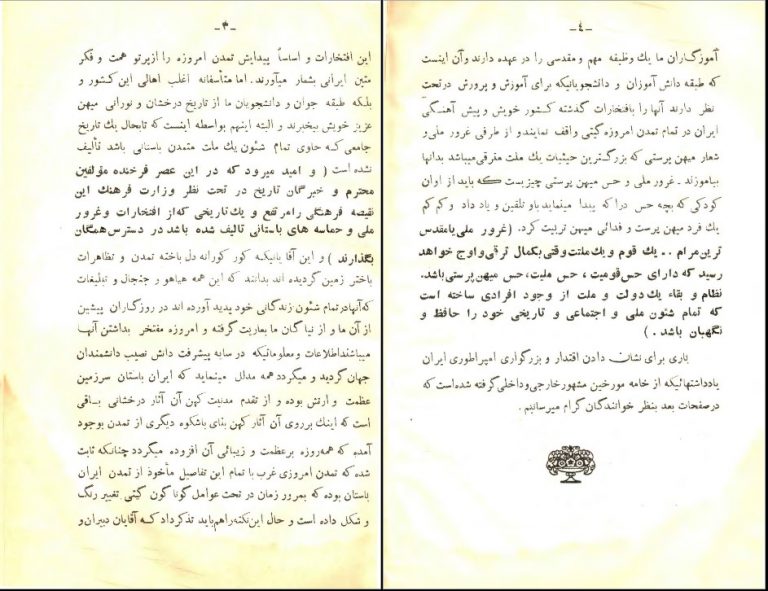 -۳-
این افتخارات و اساساً پیدایش تمدن امروزه را ازپرتو همت و فکر
متین ایرانی بشمار میآورند. اما متأسفانه اغلب اهالی این کشور و
بلکه طبقه جوان و دانشجویان ما از تاریخ درخشان و نورانی میهن
عزیز خویش بیخبرند و البته اینهم بواسطه اینست که تابحال یك تاریخ
جامعی که حاوی تمام شئون یك ملت متمدن باستانی باشد تألیف
نشده است ( و امید میرود که در این عصر فرخنده مؤلفین
محترم و خبرگان تاریخ در تحت نظر وزارت فرهنگ این
نقیصه فرهنگی رامرتفع و یك تاریخی که از افتخارات وغرور
ملی و حماسه های باستانی تالیف شده باشد در دسترس همگان
بگذارند ) و این آقایانیکه کور کورانه دل باخته تمدن و تظاهرات
باختر زمین گردیده اند بدانند که این همه هیاهو و جنجال و تبلیغات
که آنها در تمام شئون زندگانی خود پدید آورده اند در روزگاران پیشین
از آن ما و از نیاگان ما بعاریت گرفته و امروزه مفتخر بداشتن آنها
میباشند اطلاعات و معلوماتیکه در سایه پیشرفت دانش نصیب دانشمندان
جهان گردید و میگردد همه مدلل مینماید که ایران باستان سرزمین
عظمت و ارتش بوده و از تقدم مدنیت کهن آن آثار درخشانی بباقی
است که اینك برروی آن آثار کهن بنای باشکوه دیگری از تمدن بوجود
آمده که همه روزه برعظمت و زیبائی آن افزوده میگردد چنانکه ثابت
شده که تمدن امروزی غرب با تمام این تفاصیل مأخوذ از تمدن ایران
باستان بوده که بمرور زمان در تحت عوامل گونا گون گیتی تغییر رنگ
و شکل داده است و حال این نکته راهم باید تذکر داد که آقایان دبیران و
-٤-
آموزگاران ما یك وظیفه مهم و مقدسی را در عهده دارند و آن اینست
که طبقه دانش آموزان و دانشجویانیکه برای آموزش و پرورش درتحت
نظر دارند آنها را بافتخارات گذشته کشور خویش و پیش آهنگی
ایران در تمام تمدن امروزه گیتی واقف نمایند و از طرفی غرور ملی و
شعار میهن پرستی که بزرگترین حیثیات یك ملت مفرقی میباشد بدانها
بیاموزند ـ غرور ملی و حس میهن پرستی چیزیست که باید از اوان
کودکی که بچه حس درا که پیدا مینماید باو تلقین و یاد داد و کم کم
یك فرد میهن پرست و فدائی میهن تربیت کرد. (غرور ملی یا مقدس
ترین مرام .. یك قوم و یك ملت وقتی بکمال ترقی و اوج خواهد
رسید که دارای حس قومیت ، حس ملیت، حس میهن پرستی باشد.
نظام و بقاء یك دولت و ملت از وجود افرادی ساخته است
که تمام شئون ملی و اجتماعی و تاریخی خود را حافظ و
نگهبان باشد . )
باری برای نشان دادن اقتدار و بزرگواری امپراطوری ایران
یادداشتهائیکه از خامه مورخین مشهور خارجی و داخلی گرفته شده است که
در صفحات بعد بنظر خوانندگان گرام میرسانیم .